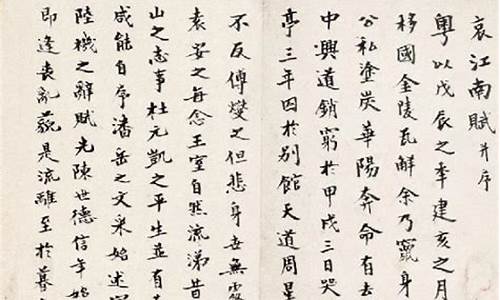 哀江南賦并序
粵以戊辰之秊建亥之月
移國金陵瓦解余乃竄身
公私塗炭華陽奔命有去
中興道銷窮於甲戌三日哭
亭三年囚於別館天道周星
不反傅燮之但悲身世無
袁安之每念王室自然流涕昔
山之志事杜元凱之平生並有
咸能自序潘岳之文采始述
陸機之辭賦先陳世德信年始
即逢喪亂藐是流離至於暮